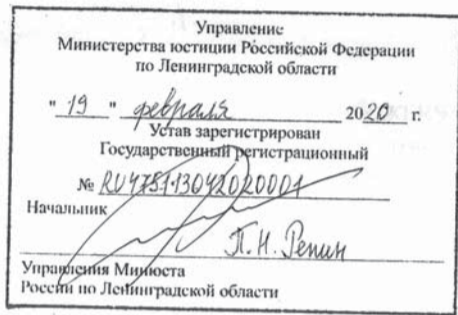 Управление
Министерства юстиции Российской Федерации
по Ленинградской области
" 19 " февраля 2020 г.
Устав зарегистрирован
Государственный регистрационный
№ RU47513042020001
Начальник
П.Н. Репин
Управления Минюста
России по Ленинградской области